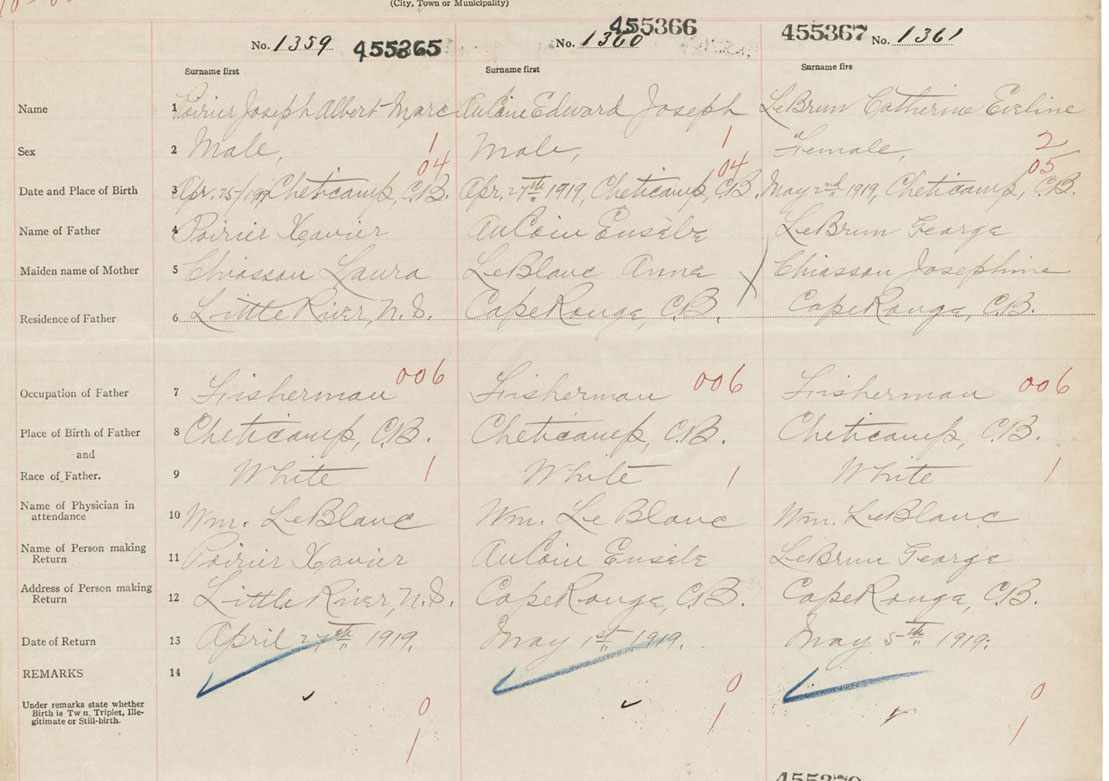 (City, Town or Municipality)
No. 1359 455365 No. 1360 455366 455367 No. 1361
Surname first Surname first Surname firs
Name 1 Poirier Joseph Albert Marc AuCoin Edward Joseph LeBrun Catherine Eveline
Sex 2 Male, 1 Male, 1 Female, 2
04 04 05
Date and Place of Birth 3 Apr. 25/19 Cheticamp, C.B. Apr. 27th 1919, Cheticamp, C.B. May 2nd 1919, Cheticamp, C.B.
Name of Father 4 Poirier Xavier AuCoin Eusebe LeBrun George
Maiden name of Mother 5 Chiasson Laura LeBlanc Anne Chiasson Josephine
Residence of Father 6 Little River, N.S. Cape Rouge, C.B. Cape Rouge, C.B.
Occupation of Father 7 Fisherman 006 Fisherman 006 Fisherman 006
Place of Birth of Father 8 Cheticamp, C.B. Cheticamp, C.B. Cheticamp, C.B.
and
Race of Father. 9 White 1 White 1 White 1
Name of Physician in
attendance 10 Wm. LeBlanc Wm. LeBlanc Wm. LeBlanc
Name of Person making
Return 11 Poirier Xavier AuCoin Eusebe LeBrun George
Address of Person making
Return 12 Little River, N.S. Cape Rouge, C.B. Cape Rouge, C.B.
Date of Return 13 April 1919. May 1st 1919. May 5th 1919.
REMARKS 14
Under remarks state whether
Birth is Tw n, Triplet, Ille-
gitimate or Still-birth.
0 0 0
1 1 1